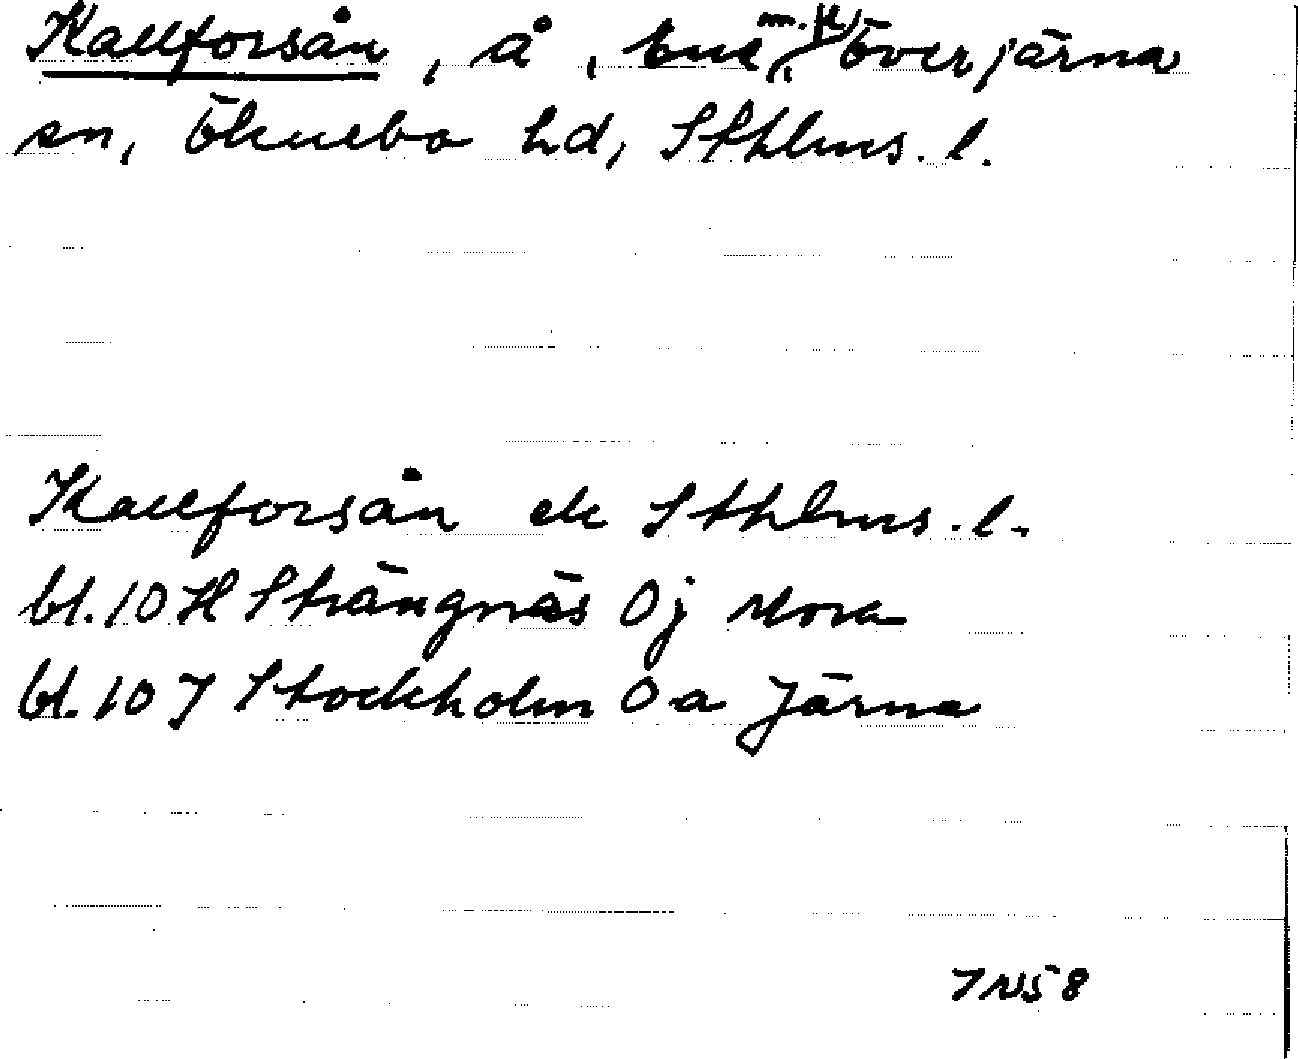 Kallforsån, å, bl.a. m.fl. Överjärna
sn, Öknebo hd, Sthlms. l.
Kallforsån ek Sthlms. l.
bl. 10 H Strängnäs 0j Mora
bl. 10 I Stockholm 0a Järna